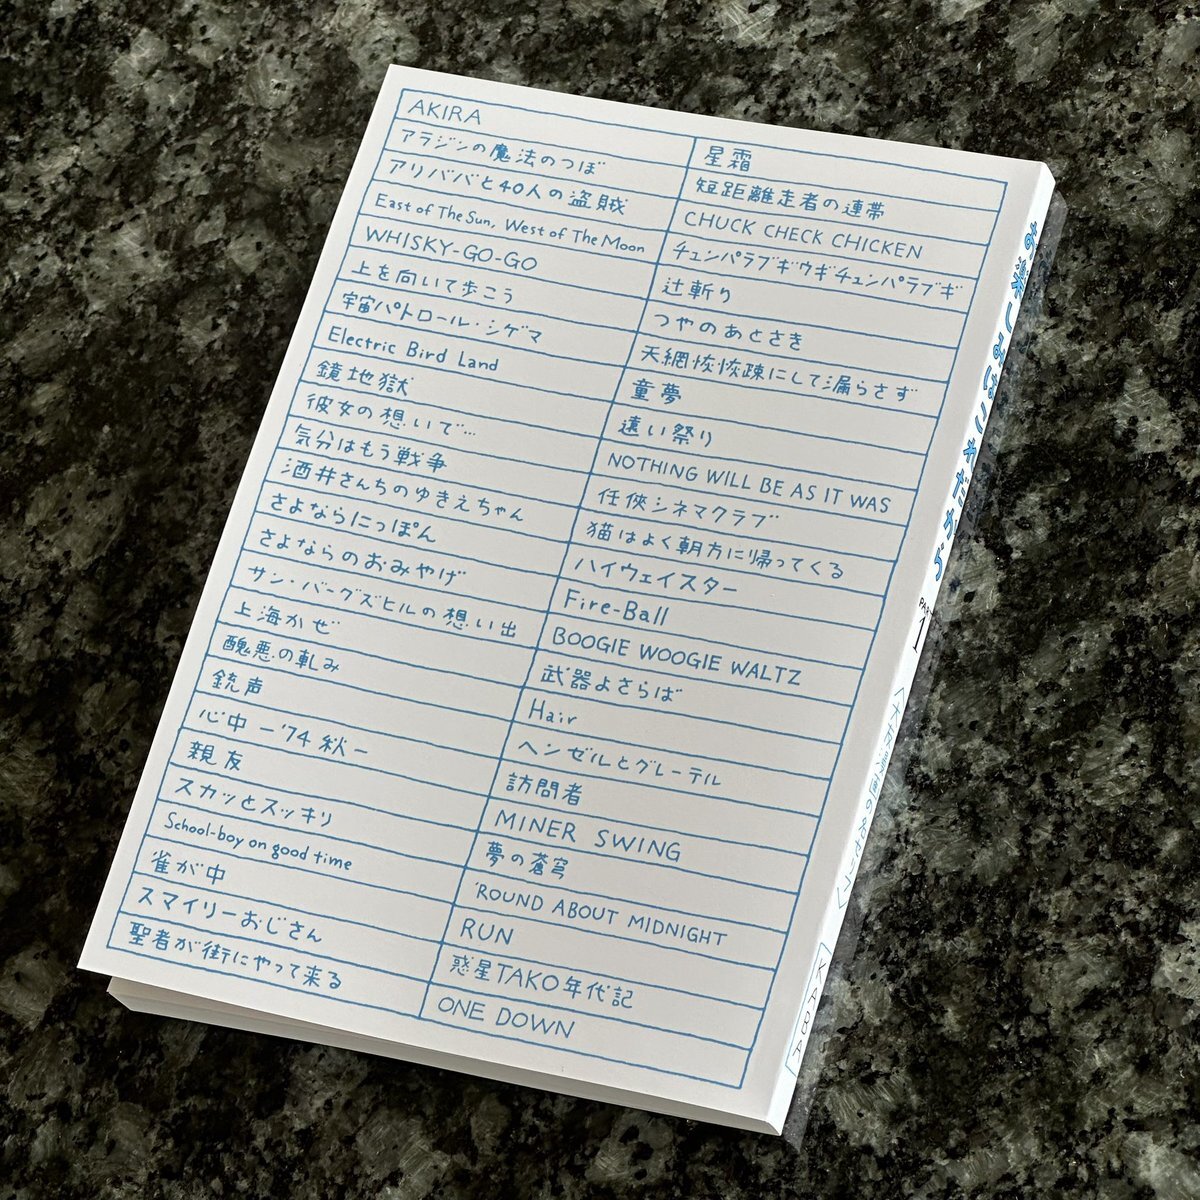 AKIRA
アラジンの魔法のつぼ
アリババと40人の盗賊
East of The Sun, West of The Moon
WHISKY-GO-GO
上を向いて歩こう
宇宙パトロール・シゲマ
Electric Bird Land
鏡地獄
彼女の想いで…
気分はもう戦争
酒井さんちのゆきえちゃん
さよならにっぽん
さよならのおみやげ
サン・バーグズヒルの想い出
上海かぜ
醜悪の軋み
銃声
心中ー'74秋ー
親友
スカッとスッキリ
School-boy on good time
雀が中
スマイリーおじさん
聖者が街にやって来る
星霜
短距離走者の連帯
CHUCK CHECK CHICKEN
チュンパラブギウギチュンパラブギ
辻斬り
つやのあとさき
天網恢恢疎にして漏らさず
童夢
遠い祭り
NOTHING WILL BE AS IT WAS
任侠シネマクラブ
猫はよく朝方に帰ってくる
ハイウェイスター
Fire-Ball
BOOGIE WOOGIE WALTZ
武器よさらば
Hair
ヘンゼルとグレーテル
訪問者
MINER SWING
夢の蒼穹
'ROUND ABOUT MIDNIGHT
RUN
惑星TAKO年代記
ONE DOWN
PART 1
KABA